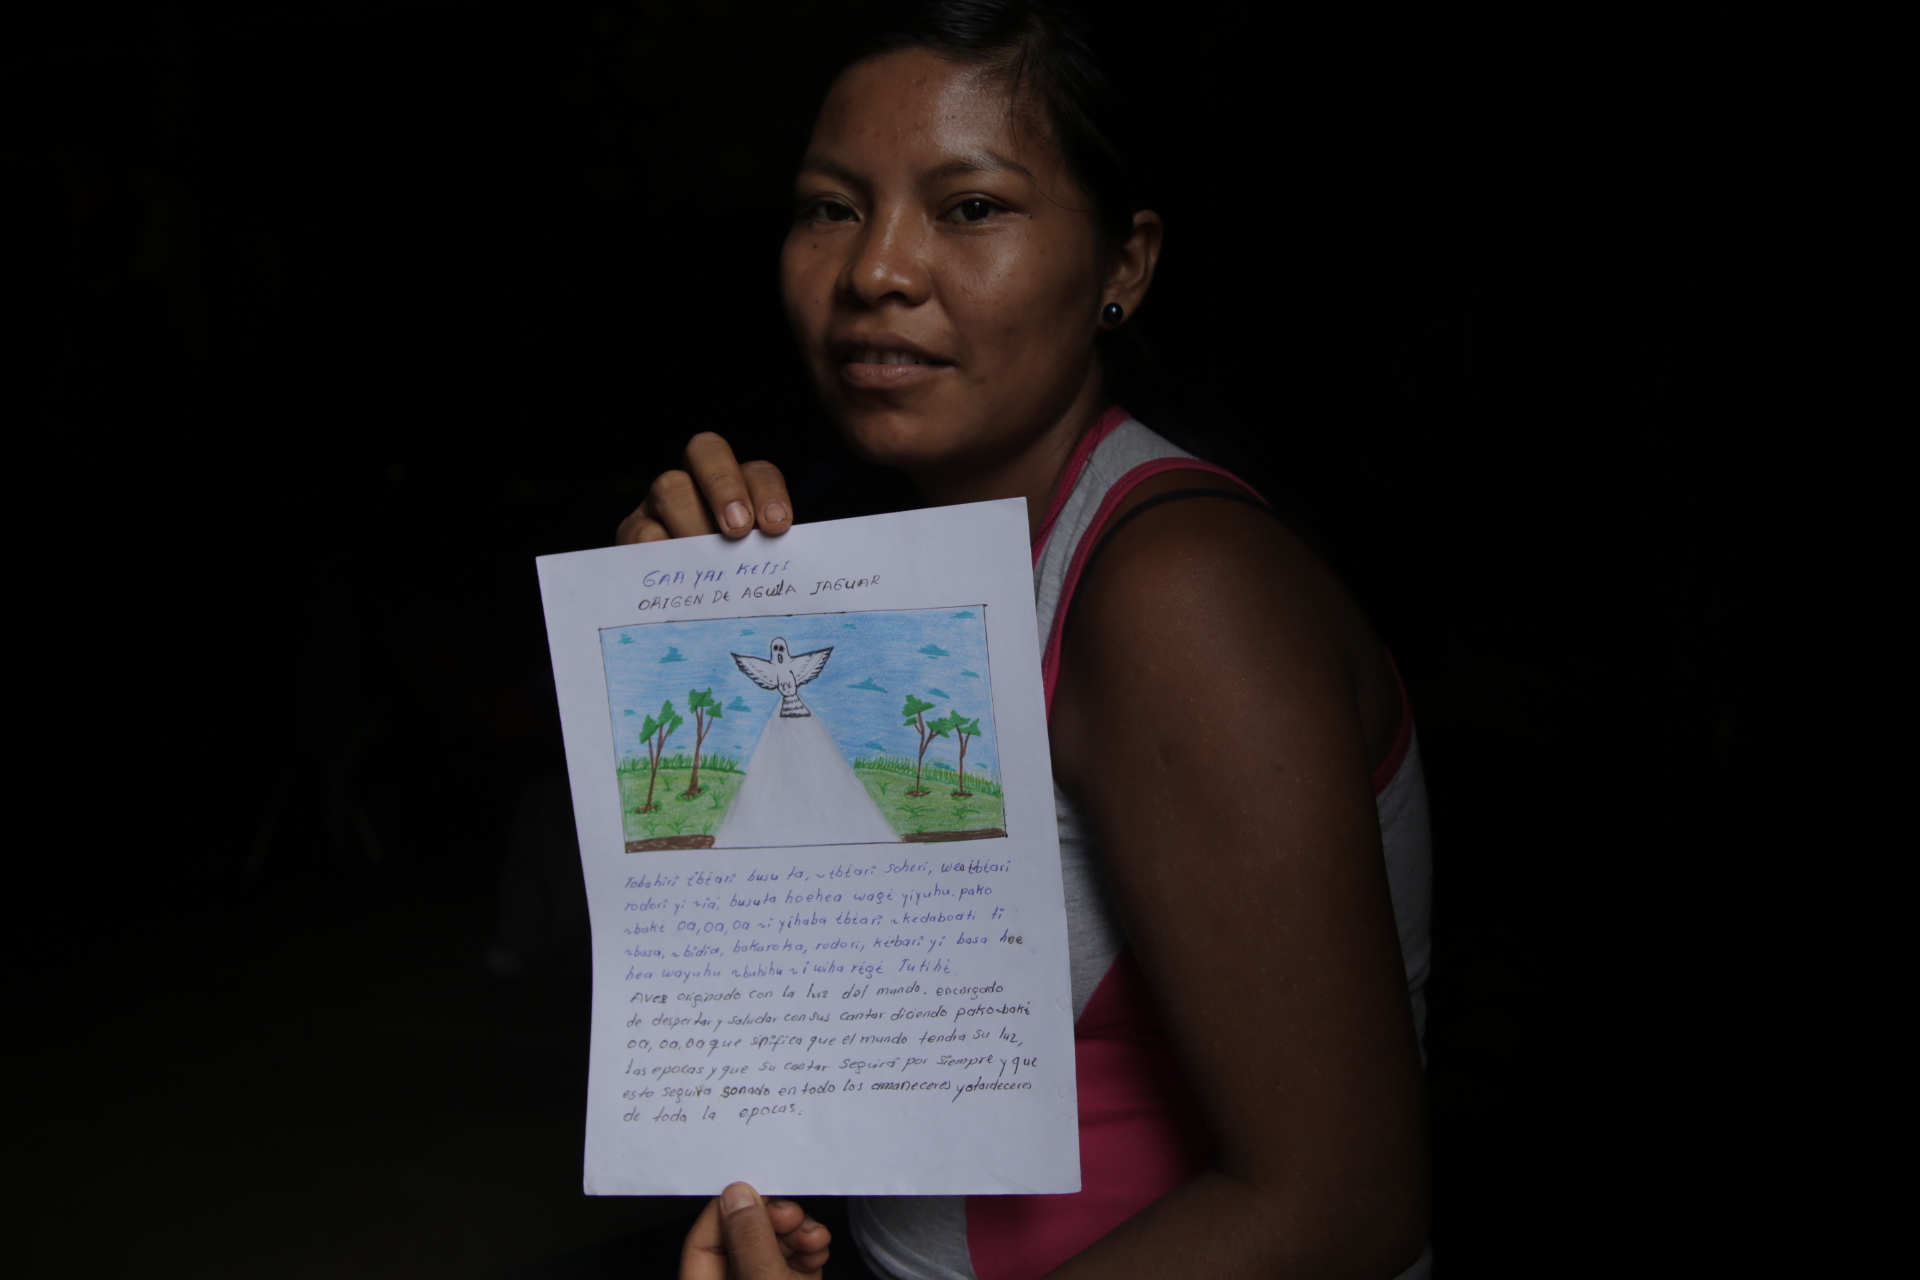 GAA YAI KETII
ORIGEN DE AGUILA JAGUAR
Tobahiri ɨbɨari busu ta, ~ɨbɨari soheri, weaɨbɨari
rodori yi ~iá, busuta hoehea wagɨ yiyuhu. pako
~bakɨ oa, oa, oa ~i yɨhaba ɨbɨari ~kedaboatɨ ti
~basa, ~bidia, bakaroka, rodori, kɨbari yi basa hoe
hea wayuhu ~buhihu ~i wiha rɨgɨ Tutihɨ.
Avez originado con la luz del mundo. encargado
de despertar y saludar con sus cantar diciendo pako~bakɨ
oa, oa, oa que snifica que el mundo tendra su luz,
las epocas y que su cantar seguirá por siempre y que
esto seguira sonado en todo los amaneceres y atardeceres
de toda la epocas.